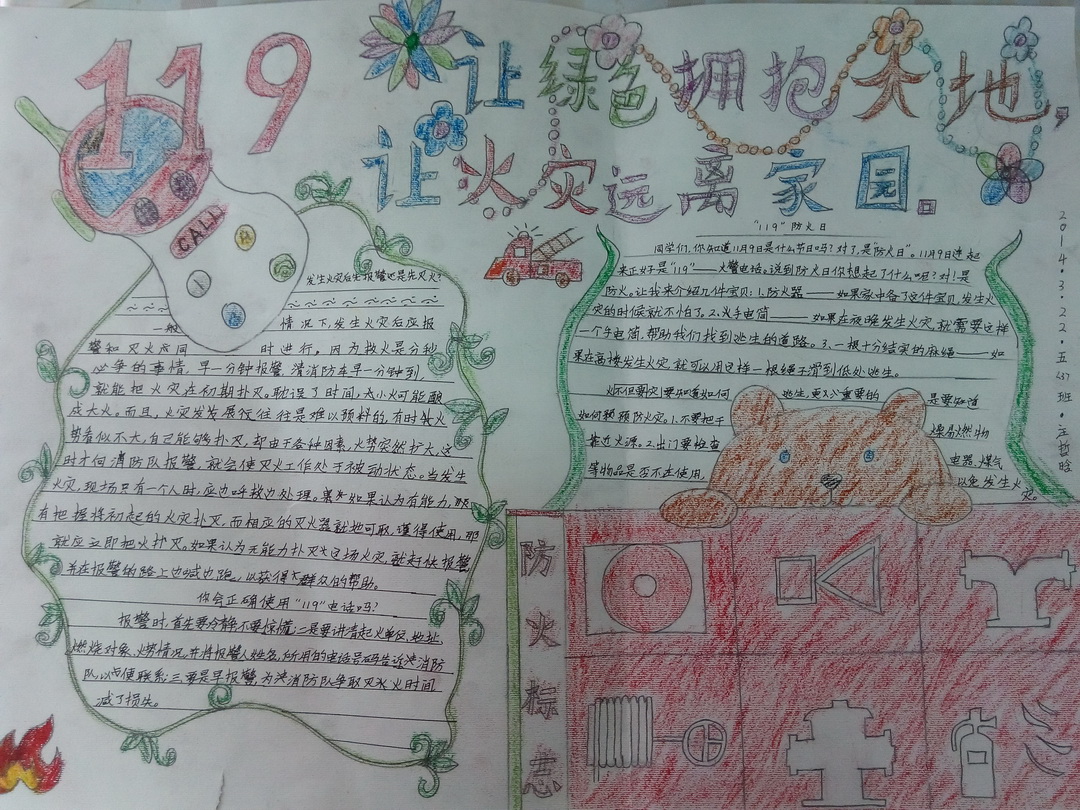 119
让绿色拥抱大地，
让火灾远离家园。
CALL
发生火灾后先报警还是先灭火？
一般 情况下，发生火灾后应报
警和灭火应同 时进行，因为救火是分秒
必争的事情，早一分钟报警，消防车早一分钟到，
就能把火灾在初期扑灭。耽误了时间，太小火可能酿
成大火。而且，火灾发发展往往往是难以预料的，有时候火
势看似不大，自己能够扑灭，却由于各种因素，火势突然扩大，这
时才向消防队报警，就会使灭火工作处于被动状态。当发生
火灾，现场只有一个人时，应边呼救边处理。如果认为有能力，
有把握将初起的火灾扑灭，而相应的灭火器就地可取，懂得使用，那
就应立即把火扑灭。如果认为无能力扑灭这场火灾，就赶快报警
并在报警的路上边喊边跑，以获得群众的帮助。
你会正确使用“119”电话吗？
报警时，首先要冷静不要惊慌；二是要讲清起火单位，地址，
燃烧对象，火势情况，并将报警人姓名，所用的电话号码告诉消防
队，以便联系；三要是早报警，为消防队争取灭火时间，
减了损失。
“119”防火日
同学们，你知道11月9日是什么节日吗？对了，是“防火日”。11月9日连起
来正好是“119”——火警电话。说到防火日你想起了什么呢？对！是
防火。让我来介绍几件宝贝：1.防火器——如果家中备了这件宝贝，发生火
灾的时候就不怕了。2.火手电筒——如果在夜晚发生火灾，就需要这样
一个手电筒，帮助我们找到逃生的道路。3.一根十分结实的麻绳——如
果在高楼发生火灾，就可以用这样一根绳子滑到低处逃生。
火灾要知道如何 逃生，更重要的 是要知道
如何预防火灾。1.不要把干 燥易燃物
靠近火源。2.出门要检查 电器，煤气
等物品是否不连使用， 以免发生火
灾。
2014.3.22.五 班.
防火标志